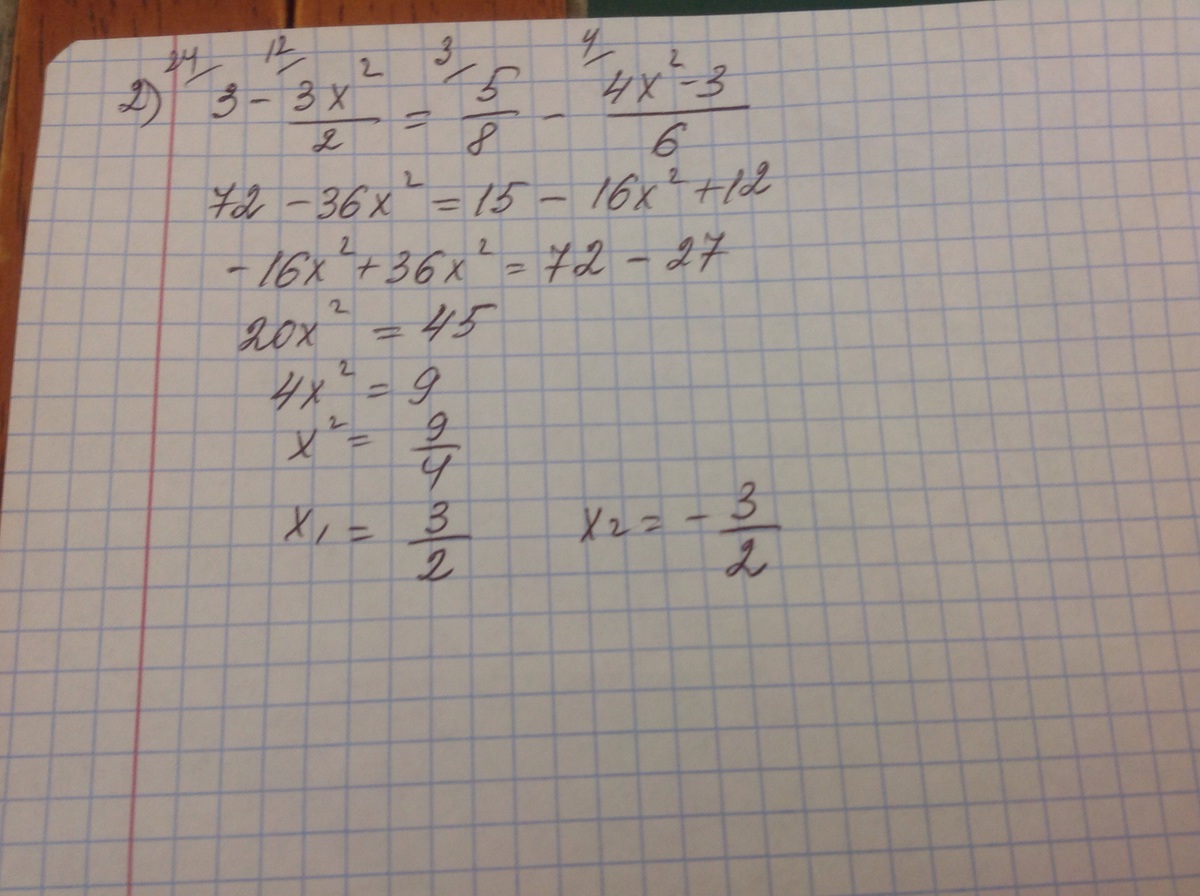 24/ 12/ 3/ 4/
2) 3 - 3x²/2 = 5/8 - (4x² - 3)/6
72 - 36x² = 15 - 16x² + 12
- 16x² + 36x² = 72 - 27
20x² = 45
4x² = 9
x² = 9/4
x₁ = 3/2 x₂ = - 3/2